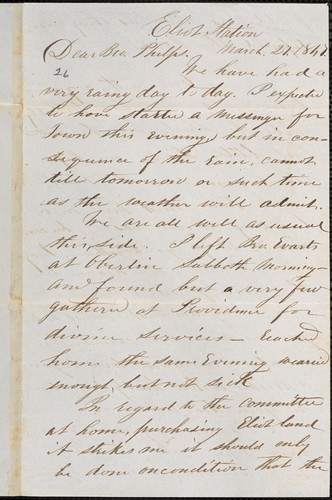 Eliot Station
Dear Bro. Phelps. March 27. 184
26
We have had a
very rainy day to day. I expected
to have started a Messenger for
Town this evening, but in con-
sequence of the rain, cannot
till tomorrow or such time
as the weather will admit.
We are all well as usual
this side. I left Bro Evarts
at Oberlin Sabbath Morning
and found but a very few
gathered at Providence for
divine services - reached
home the same Evening wearied
enough, but not sick
In regard to the Committee
at home, purchasing Eliot land
it strikes me it should only
be done on condition that the